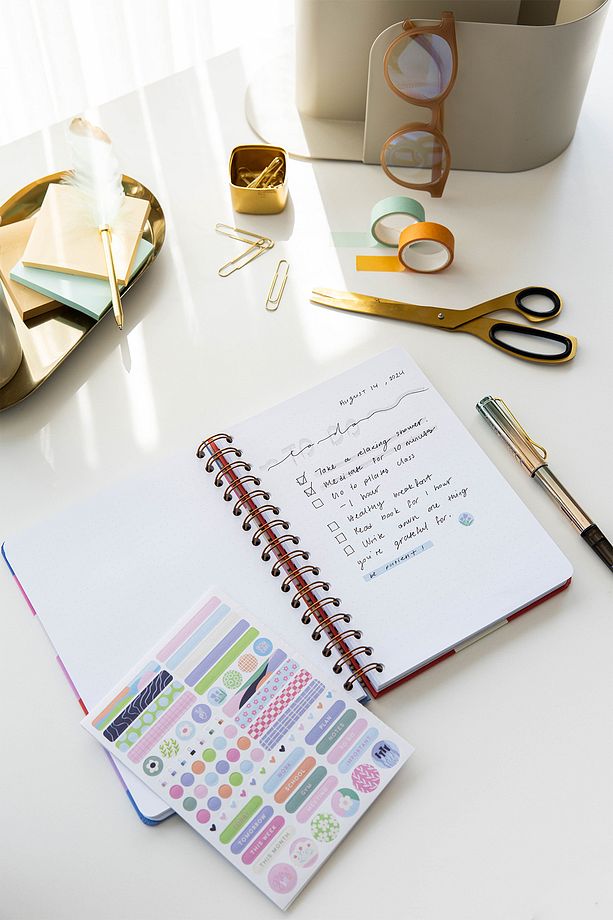 August 14, 2024
to do
Take a relaxing shower.
Meditate for 10 minutes
Go to pilates class
- 1 hour
Healthy breakfast
Read book for 1 hour
Write down one thing
you're grateful for.
be present!
PLAN
NOTES
TO DO
IMPORTANT
WORK
SCHOOL
GYM
MEETING
TOMORROW
THIS WEEK
THIS MONTH